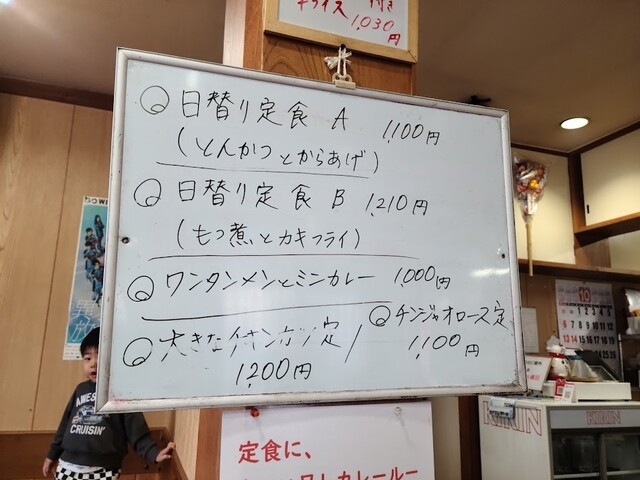 付き
ギライス 1,030円
日替り定食 A 1,100円
(とんかつとからあげ)
日替り定食 B 1,210円
(もつ煮とカキフライ)
ワンタンメンとミンカレー 1,000円
大きなイキンカツ定 / チンジャオロース定
1,200円 1,100円
定食に、
カレールー
AWESOME
CRUISIN'
10
KIRIN
KIRIN